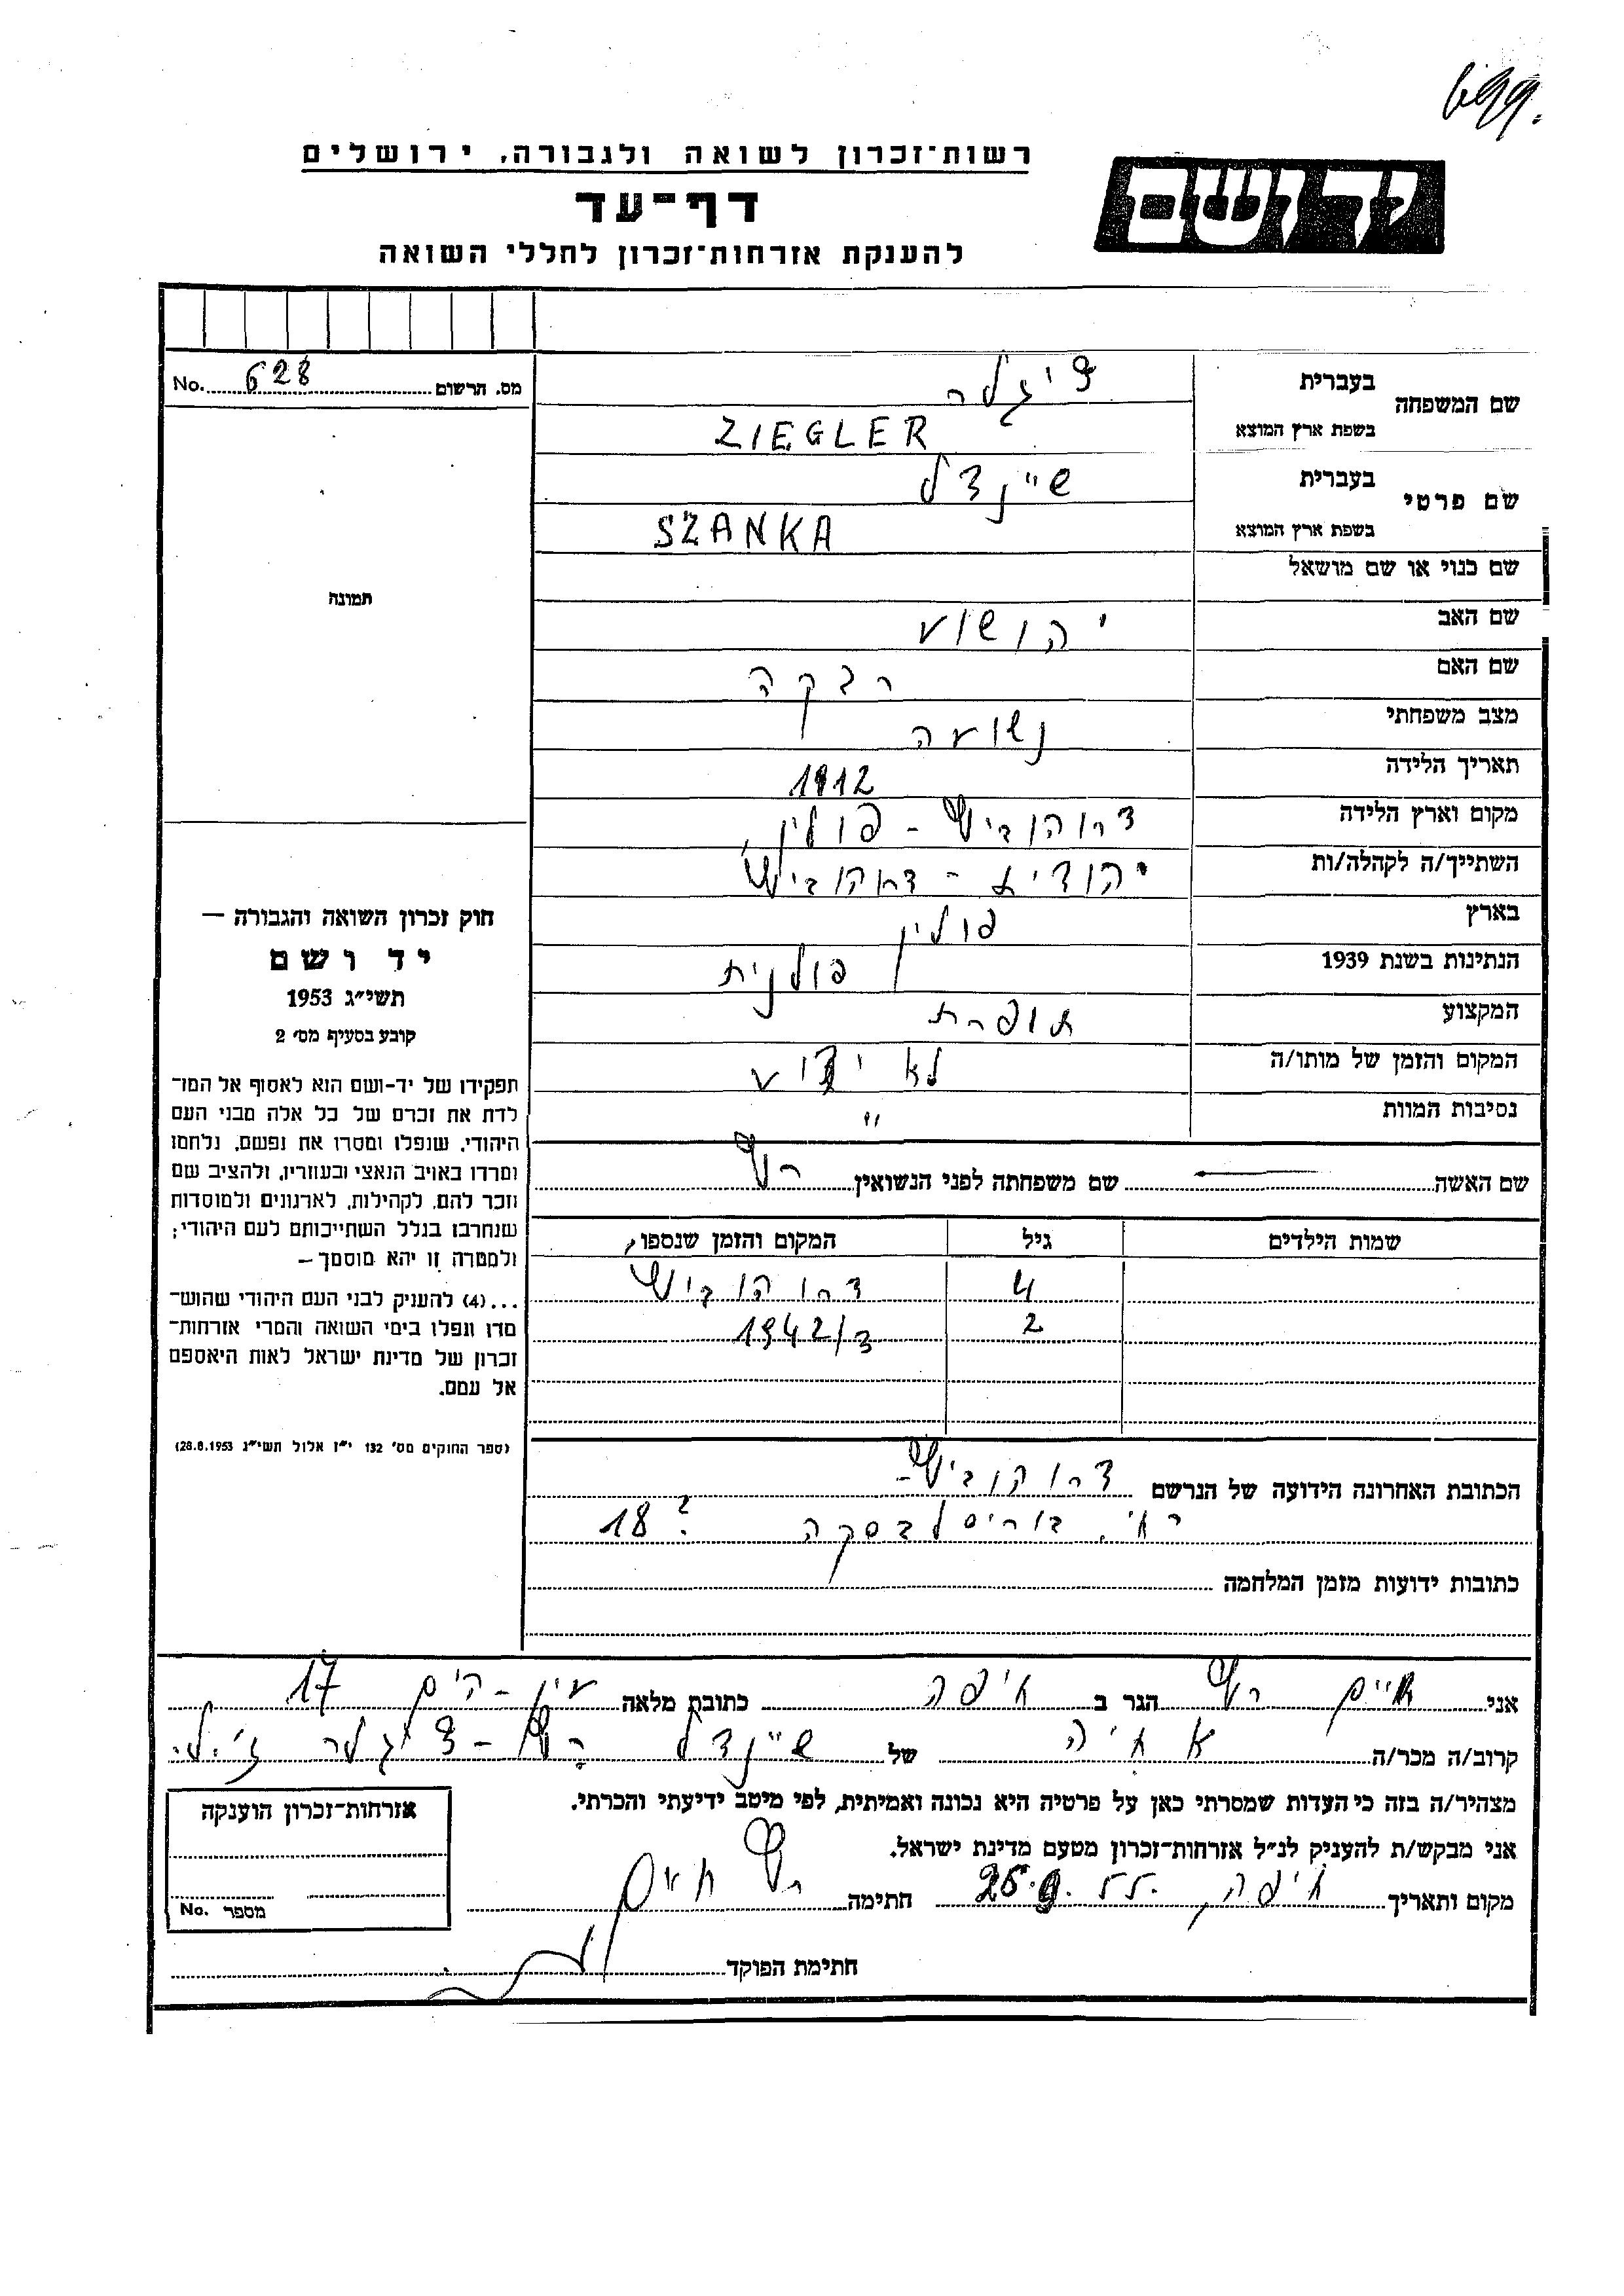 רשות־זכרון לשואה ולגבורה, ירושלים
יד ושם
דף־עד
להענקת אזרחות־זכרון לחללי השואה
No. 628 מס. הרשום
שם המשפחה בעברית ציגלר
בשפת ארץ המוצא ZIEGLER
שם פרטי בעברית שיינדל
בשפת ארץ המוצא SZANKA
שם כנוי או שם מושאל
שם האב יהושוע
שם האם רבקה
מצב משפחתי נשואה
תאריך הלידה 1912
מקום וארץ הלידה דרוהוביץ - פולין
השתייך/ה לקהלה/ות יהודית - דרוהוביץ
בארץ פולין
הנתינות בשנת 1939 פולנית
המקצוע תופרת
המקום והזמן של מותו/ה לא ידוע
נסיבות המוות "
שם האשה שם משפחתה לפני הנשואין
שמות הילדים גיל המקום והזמן שנספו
4 דרוהוביץ
2 1942/3
הכתובת האחרונה הידועה של הנרשם דרוהוביץ -
רח׳ בוריסלבסקה 18 ?
כתובות ידועות מזמן המלחמה
תמונה
חוק זכרון השואה והגבורה —
יד ושם
תשי״ג 1953
קובע בסעיף מס׳ 2
תפקידו של יד-ושם הוא לאסוף אל המו־
לדת את זכרם של כל אלה מבני העם
היהודי, שנפלו ומסרו את נפשם, נלחמו
ומרדו באויב הנאצי ובעוזריו, ולהציב שם
וזכר להם, לקהילות, לארגונים ולמוסדות
שנחרבו בגלל השתייכותם לעם היהודי;
ולמטרה זו יהא מוסמך —
...(4) להעניק לבני העם היהודי שהוש־
מדו ונפלו בימי השואה והמרי אזרחות־
זכרון של מדינת ישראל לאות היאספם
אל עמם.
(ספר החוקים מס׳ 132 י״ז אלול תשי״ג 28.8.1953)
אני חיים הגר ב חיפה כתובת מלאה עין-הים 17
קרוב/ה מכר/ה אחיה של שיינדל - ציגלר ז״ל
מצהיר/ה בזה כי העדות שמסרתי כאן על פרטיה היא נכונה ואמיתית, לפי מיטב ידיעתי והכרתי.
אני מבקש/ת להעניק לנ״ל אזרחות־זכרון מטעם מדינת ישראל.
מקום ותאריך חיפה, חתימה חיים
חתימת הפוקד
אזרחות־זכרון הוענקה
No. מספר